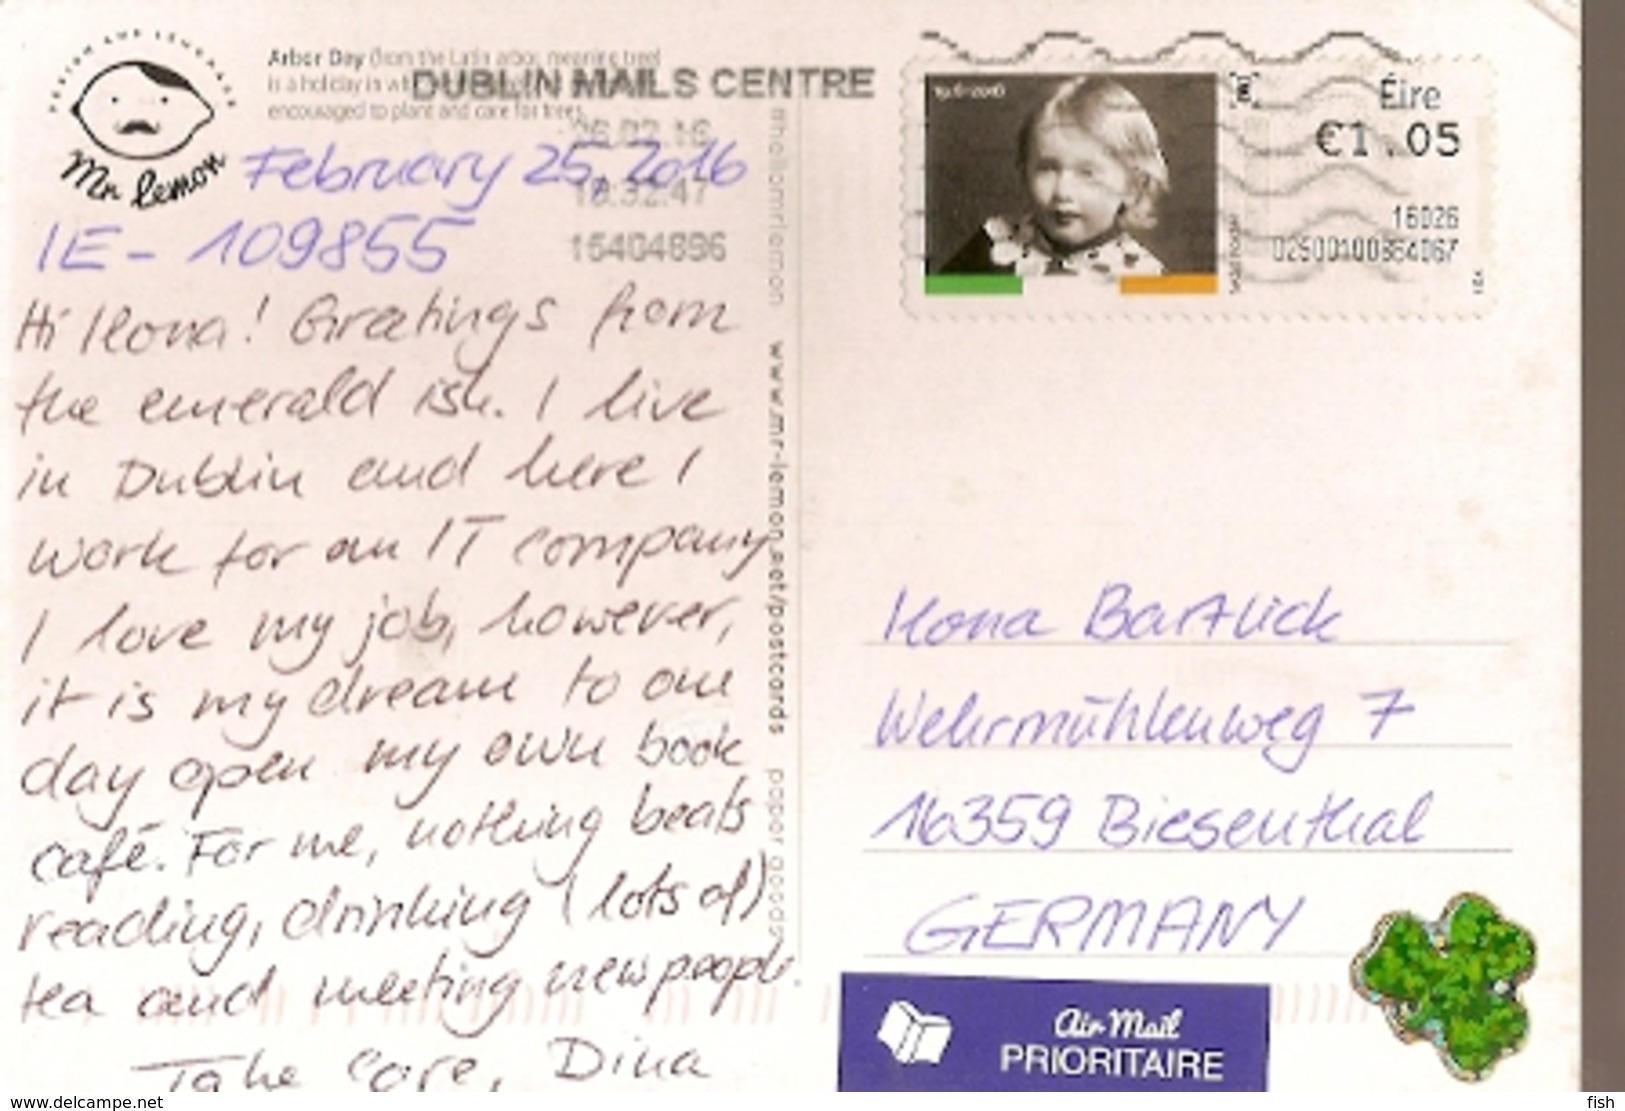 DESIGN AND LEMONADE
Mr lemon
Arbor Day (from the Latin arbor, meaning tree)
is a holiday in
encouraged to plant and care for trees.
DUBLIN MAILS CENTRE
18:32:47
15404896
February 25, 2016
IE - 109855
Hi Ilona! Greetings from
the emerald isle. I live
in Dublin and here I
work for an IT company
I love my job, however,
it is my dream to one
day open my own book
café. For me, nothing beats
reading, drinking (lots of)
tea and meeting new people.
Take care, Dina
www.mr-lemon.net/postcards paper goods
1916-2016
Éire
€1.05
16026
Ilona Bartlick
Wehrmühlenweg 7
16359 Biesenthal
GERMANY
Air Mail
PRIORITAIRE
www.delcampe.net
fish